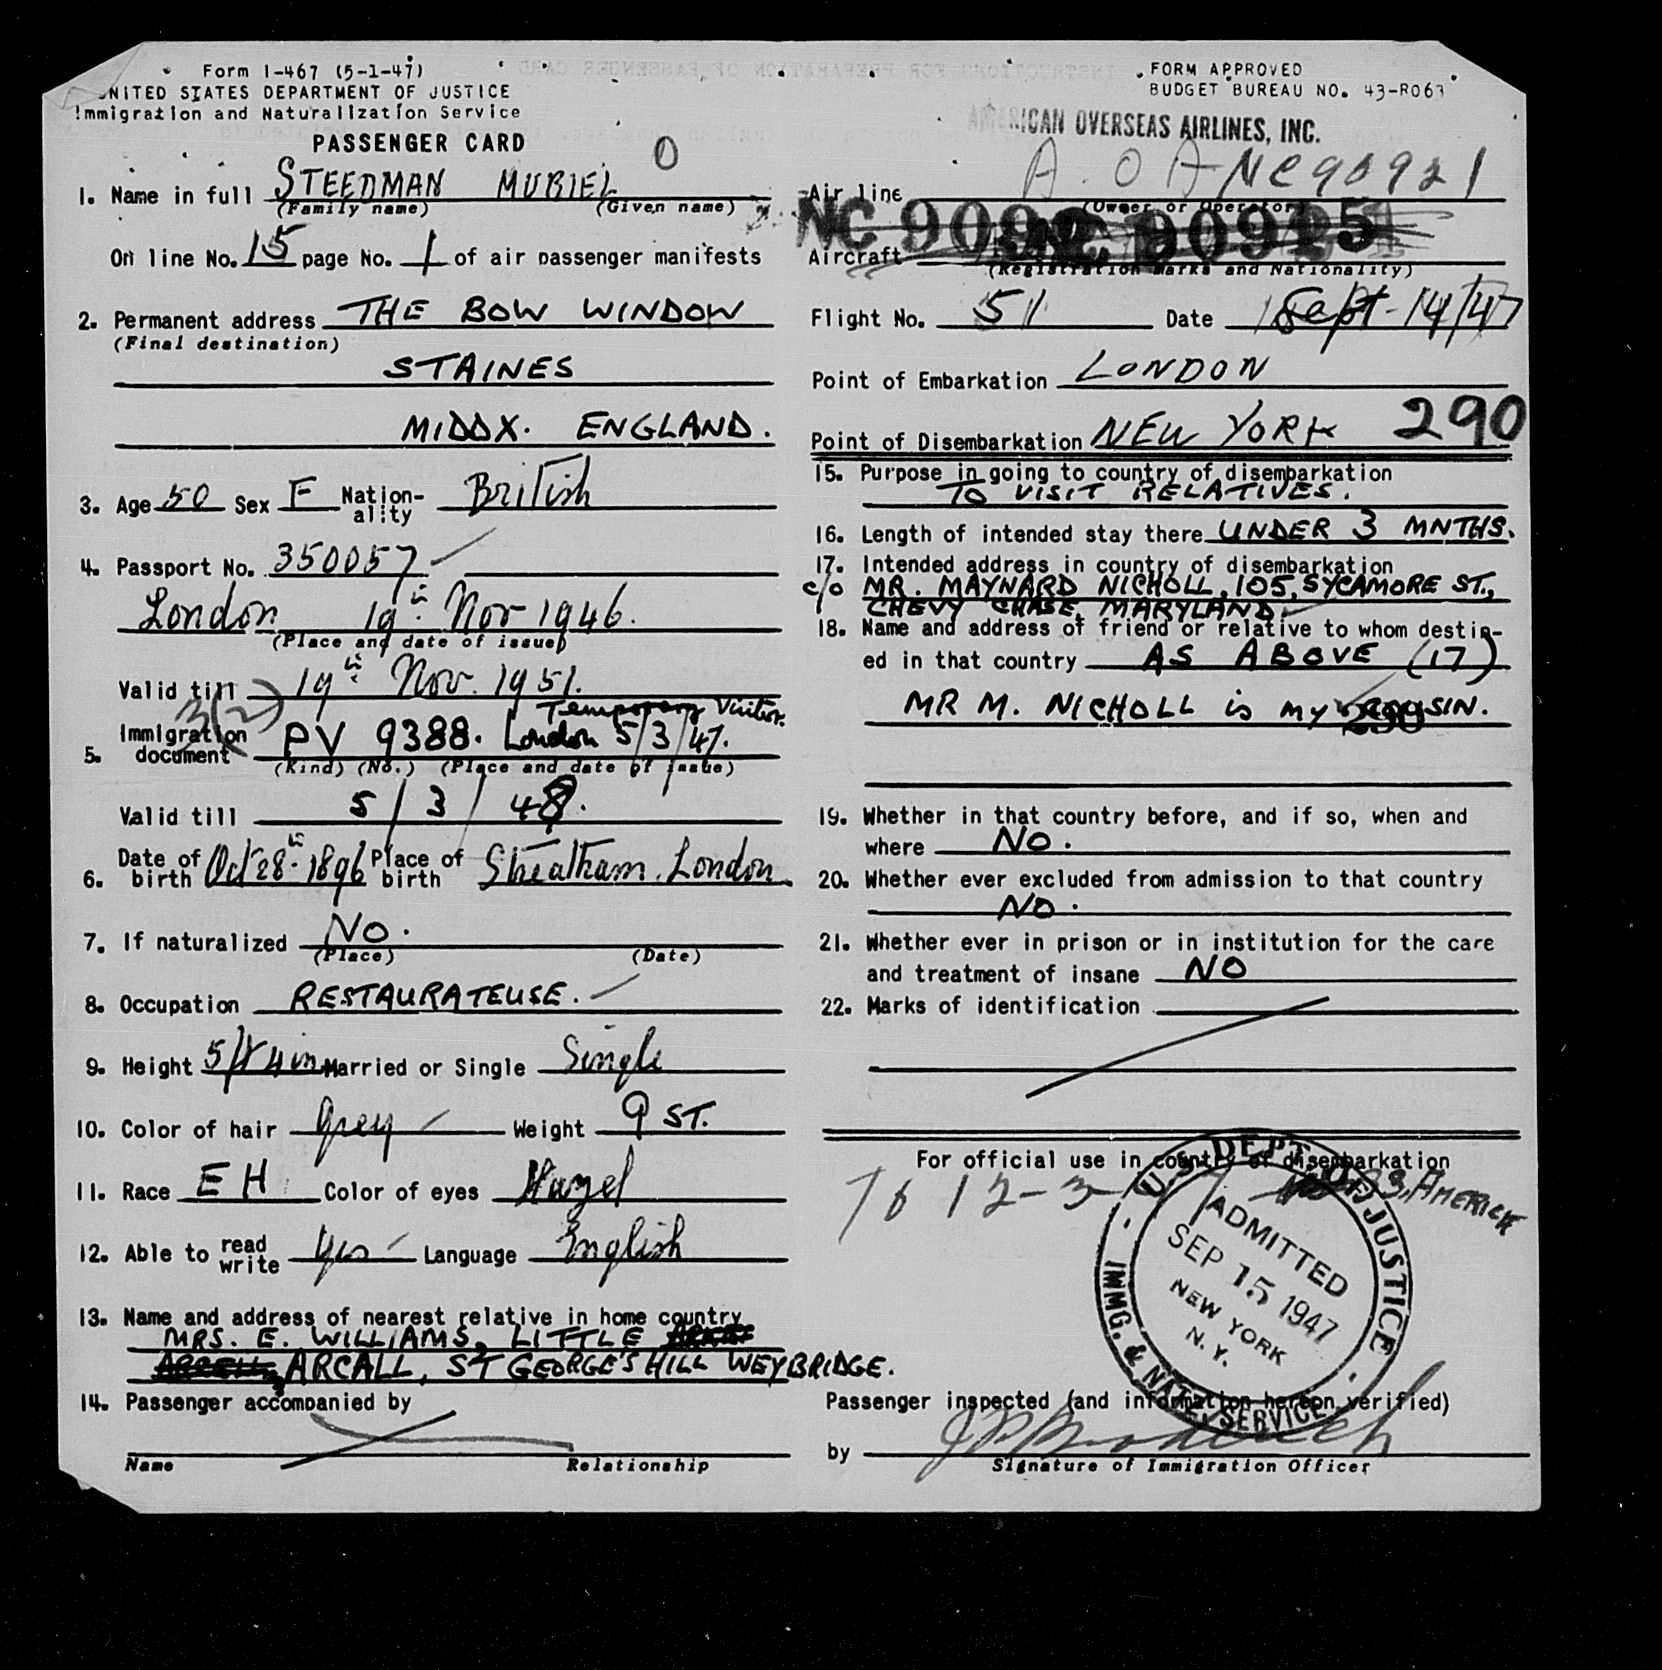 Form I-467 (5-1-47)
UNITED STATES DEPARTMENT OF JUSTICE
Immigration and Naturalization Service
PASSENGER CARD
0
1. Name in full STEEDMAN MURIEL
(Family name) (Given name)
On line No. 15 page No. 1 of air passenger manifests
2. Permanent address THE BOW WINDOW
(Final destination)
STAINES
MIDDX. ENGLAND.
3. Age 50 Sex F Nation-ality British
4. Passport No. 350057
London 19th Nov 1946.
(Place and date of issue)
Valid till 19th Nov. 1951.
3(2)
Temporary Visitor.
5. Immigration document PV 9388. London 5/3/47.
(Kind) (No.) (Place and date of issue)
Valid till 5/3/48.
6. Date of birth Oct 28th 1896 Place of birth Streatham. London
7. If naturalized No.
(Place) (Date)
8. Occupation RESTAURATEUSE.
9. Height 5ft 4in Married or Single Single
10. Color of hair Grey Weight 9 ST.
11. Race E H Color of eyes Hazel
12. Able to read write Yes Language English
13. Name and address of nearest relative in home country
MRS. E. WILLIAMS, LITTLE
ARCALL, ST GEORGE'S HILL WEYBRIDGE.
14. Passenger accompanied by
Name Relationship
FORM APPROVED
BUDGET BUREAU NO. 43-R063
AMERICAN OVERSEAS AIRLINES, INC.
Air line A.O.A NC90921
(Owner or Operator)
Aircraft
(Registration Marks and Nationality)
Flight No. 51 Date Sept-14/47
Point of Embarkation LONDON
Point of Disembarkation NEW YORK 290
15. Purpose in going to country of disembarkation
TO VISIT RELATIVES.
16. Length of intended stay there UNDER 3 MNTHS.
17. Intended address in country of disembarkation
c/o MR. MAYNARD NICHOLL, 105, SYCAMORE ST.,
CHEVY CHASE, MARYLAND
18. Name and address of friend or relative to whom destin-
ed in that country AS ABOVE (17)
MR M. NICHOLL is my COUSIN.
290
19. Whether in that country before, and if so, when and
where NO.
20. Whether ever excluded from admission to that country
NO.
21. Whether ever in prison or in institution for the care
and treatment of insane NO
22. Marks of identification
For official use in country of disembarkation
U.S. DEPT. OF JUSTICE
IMMG. & NATZ. SERVICE
ADMITTED
SEP 15 1947
NEW YORK
N. Y.
Passenger inspected (and information hereon verified)
by
Signature of Immigration Officer